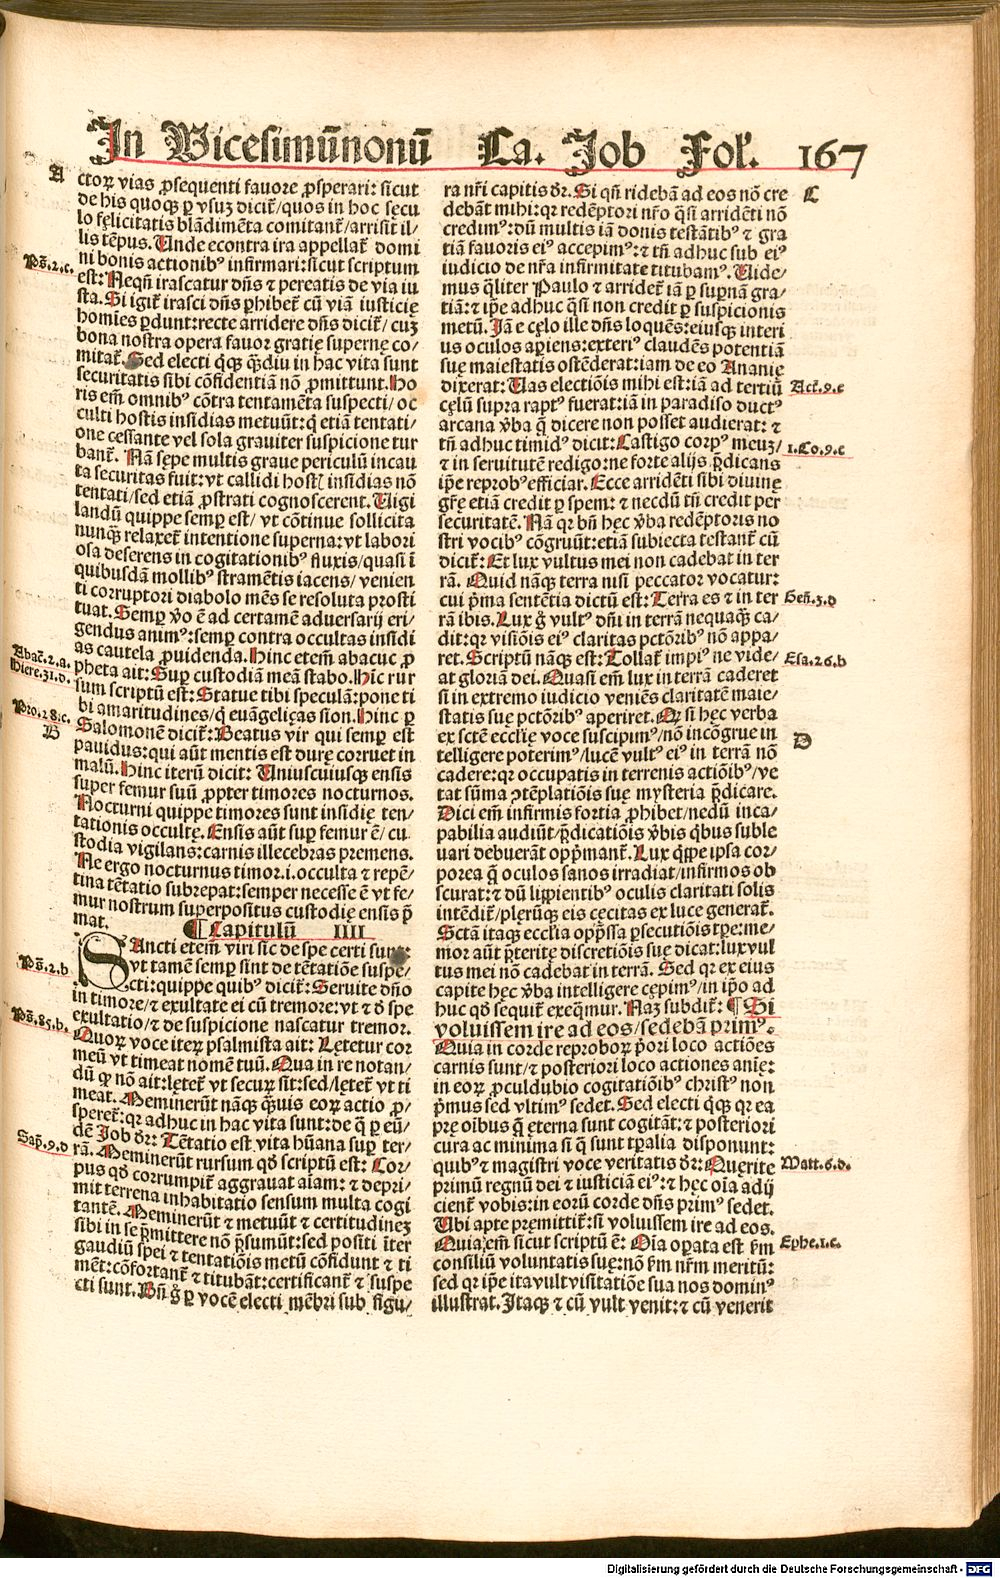 In Vicesimūnonū Ca. Job Fol'. 167
A
ctoꝝ vias ꝓsequenti fauore ꝓsperari: sicut
de his quoqꝫ ꝑ vsuꝫ dicit̄/quos in hoc sęcu
lo fęlicitatis blādimēta comitant̄/arrisit il/
lis tēpus. Unde econtra ira appellat̄ domi
ni bonis actionibꝰ infirmari: sicut scriptum
Pš.2.c.
est: Neqn̄ irascatur dn̄s ⁊ pereatis de via iu
sta. Si igit̄ irasci dn̄s ꝑhibet̄ cū viā iusticię
homīes ꝑdunt: recte arridere dn̄s dicit̄/ cuꝫ
bona nostra opera fauor gratię supernę co/
mitat̄. Sed electi q̇qꝫ q̄diu in hac vita sunt
securitatis sibi cōfidentiā nō ꝓmittunt. Ho
ris em̄ omnibꝰ cōtra tentamēta suspecti/ oc
culti hostis insidias metuūt: q̇ etiā tentati/
one cessante vel sola grauiter suspicione tur
bant̄. Nā sępe multis graue periculū incau
ta securitas fuit: vt callidi hostꝭ insidias nō
tentati/sed etiā ꝓstrati cognoscerent. Uigi
landū quippe semꝑ est/ vt cōtinue sollicita
nunq̄ꝫ relaxet̄ intentione superna: vt labori
osa deserens in cogitationibꝰ fluxis/quasi ī
quibusdā mollibꝰ stramētis iacens/ venien
ti corruptori diabolo mēs se resoluta prosti
tuat. Semꝑ v̊o ē ad certamē aduersarij eri/
gendus animꝰ: semper contra occultas insidi
as cautela ꝓuidenda. Hinc etem̄ abacuc ꝓ
Abac̄.2.a.
pheta ait: Suꝑ custodiā meā stabo. Hic rur
Hiere.31.d.
sum scriptū est: Statue tibi speculā: pone ti
bi amaritudines/q̇ euāgelięas sion. Hinc ꝑ
Pro.28.c.
Salomonē dicit̄: Beatus vir qui semꝑ est
B
pauidus: qui aūt mentis est durę corruet in
malū. Hinc iterū dicit: Uniuscuiusqꝫ ensis
super femur suū ꝓpter timores nocturnos.
Nocturni quippe timores sunt insidię ten/
tationis occultę. Ensis aūt suꝑ femur ē/ cu
stodia vigilans: carnis illecebras premens.
Ne ergo nocturnus timor.i.occulta ⁊ repē/
tina tētatio subrepat: semper necesse ē vt fe/
mur nostrum superpositus custodię ensis p̄
mat.
¶ Capitulū IIII
SAncti etem̄ viri sic de spe certi sunt:
vt tamē semꝑ sint de tētatiōe suspe/
Pš.2.b
cti: quippe quibꝰ dicit̄: Seruite dn̄o
in timore/⁊ exultate ei cū tremore: vt ⁊ ď spe
exultatio/⁊ de suspicione nascatur tremor.
Pš.85.b.
Quoꝝ voce iteꝝ psalmista ait: Lętetur cor
meū vt timeat nomē tuū. Qua in re notan/
dū ꝙ nō ait: lętet̄ vt securꝰ sit: sed/lętet̄ vt ti
meat. Meminerūt nāqꝫ q̄uis eoꝝ actio ꝓ/
speret̄: qꝛ adhuc in hac vita sunt: de q̄ ꝑ eū/
dē Job d̄r: Tētatio est vita hūana suꝑ ter/
Sap̄.9.d
rā. Meminerūt rursum qď scriptū est: Cor/
pus qď corrumpit̄ aggrauat aīam: ⁊ depri/
mit terrena inhabitatio sensum multa cogi
tantē. Meminerūt ⁊ metuūt ⁊ certitudineꝫ
sibi in se p̄mittere nō p̄sumūt: sed positi īter
gaudiū spei ⁊ tentatiōis metū cōfidunt ⁊ ti
mēt: cōfortant̄ ⁊ titubāt: certificant̄ ⁊ suspe
cti sunt. Bn̄ g̊ ꝑ vocē electi mēbri sub figu/
ra nr̄i capitis d̄r. Si qn̄ ridebā ad eos nō cre
C
debāt mihi: qꝛ redēptori nr̄o q̄si arridēti nō
credimꝰ: dū multis iā donis testātibꝰ ⁊ gra
tiā fauoris eiꝰ accepimꝰ: ⁊ tn̄ adhuc sub eiꝰ
iudicio de nr̄a infirmitate titubamꝰ. Uide/
mus q̄liter Paulo ⁊ arridet̄ iā ꝑ suꝑnā gra/
tiā: ⁊ ip̄e adhuc q̄si non credit ꝑ suspicionis
metū. Jā e cęlo ille dn̄s loquēs: eiusqꝫ interi
us oculos aꝑiens: exteriꝰ claudēs potentiā
suę maiestatis ostēderat: iam de eo Ananię
dixerat: Uas electiōis mihi est: iā ad tertiū
Act̄.9.c
cęlū supra raptꝰ fuerat: iā in paradiso ductꝰ
arcana v̊ba q̄ dicere non posset audierat: ⁊
tn̄ adhuc timidꝰ dicit: Castigo corpꝰ meuꝫ/
1.Co.9.c
⁊ in seruitutē redigo: ne forte alijs p̄dicans
ip̄e reprobꝰ efficiar. Ecce arridēti sibi diuinę
gr̄ę etiā credit ꝑ spem: ⁊ necdū tn̄ credit per
securitatē. Nā qꝛ bn̄ hęc v̊ba redēptoris no
stri vocibꝰ cōgruūt: etiā subiecta testant̄ cū
dicit̄: Et lux vultus mei non cadebat in ter
rā. Quid nāqꝫ terra nisi peccator vocatur:
cui p̄ma sentētia dictū est: Terra es ⁊ in ter
Gen̄.3.d
rā ibis. Lux g̊ vultꝰ dn̄i in terrā nequaq̄ꝫ ca/
dit: qꝛ visiōis eiꝰ claritas pctōribꝰ nō appa/
ret. Scriptū nāqꝫ est: Tollat̄ impiꝰ ne vide/
Esa.26.b
at gloriā dei. Quasi em̄ lux in terrā caderet
si in extremo iudicio veniēs claritatē maie/
statis suę pctōribꝰ aperiret. Qꝛ si hęc verba
ex sctē ecclię voce suscipimꝰ/nō incōgrue in
D
telligere poterimꝰ/lucē vultꝰ eiꝰ in terrā nō
cadere: qꝛ occupatis in terrenis actiōibꝰ/ve
tat sūma ꝯtēplatiōis suę mysteria p̄dicare.
Dici em̄ infirmis fortia ꝓhibet/nedū inca/
pabilia audiūt/p̄dicatiōis v̊bis q̇bus suble
uari debuerāt opp̄mant̄. Lux q̇ppe ipsa cor/
porea q̄ oculos sanos irradiat/infirmos ob
scurat: ⁊ dū lippientibꝰ oculis claritati solis
intēdit̄/plęrūqꝫ eis cęcitas ex luce generat̄.
Sctā itaqꝫ ecclia opp̄ssa ꝑsecutiōis tꝑe: me/
mor aūt pręteritę discretiōis suę dicat: lux vul
tus mei nō cadebat in terrā. Sed qꝛ ex eius
capite hęc v̊ba intelligere cępimꝰ/in ip̄o ad
huc qď sequit̄ exeq̄mur. Naꝫ subdit̄: ¶ Si
voluissem ire ad eos/sedebā primꝰ.
Quia in corde reproboꝝ p̄ori loco actiōes
carnis sunt/⁊ posteriori loco actiones anię:
in eoꝝ ꝓculdubio cogitatiōibꝰ christꝰ non
p̄mus sed vltimꝰ sedet. Sed electi q̇qꝫ qꝛ ea
prę oībus q̄ ęterna sunt cogitāt: ⁊ posteriori
cura ac minima si q̄ sunt tꝑalia disponunt:
quibꝰ ⁊ magistri voce veritatis d̄r: Quęrite
Matt.6.d.
primū regnū dei ⁊ iusticiā eiꝰ: ⁊ hęc oīa adij
cient̄ vobis: in eorū corde dn̄s primꝰ sedet.
Ubi apte pręmittit̄: si voluissem ire ad eos.
Quia em̄ sicut scriptū ē: Oīa oꝑata est ẜm
Ephe.1.c.
consiliū voluntatis suę: nō ẜm nr̄m meritū:
sed qꝛ ip̄e ita vult visitatiōe sua nos dominꝰ
illustrat. Itaqꝫ ⁊ cū vult venit: ⁊ cū venerit
Digitalisierung gefördert durch die Deutsche Forschungsgemeinschaft - DFG